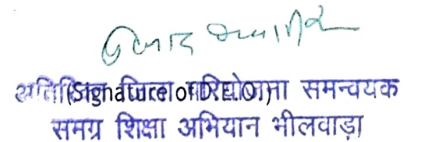 (Signature of D.E.O.)
अतिरिक्त जिला परियोजना समन्वयक
समग्र शिक्षा अभियान भीलवाड़ा